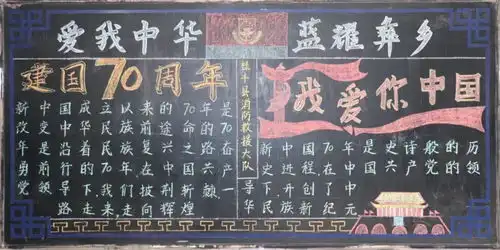 爱我中华 蓝耀彝乡
建国70周年
新中国成立以来的70年是
改变中华民族前途命的70
年是沿着民族复兴之路奋
勇前行的我们在中国兴产
党领导下走来披荆斩棘,一
路走向辉煌
县消防救援大队
我爱你中国
新中国70年是史诗般的历
史进程,在中国兴产党的领
导下开创了中
华民族新纪元